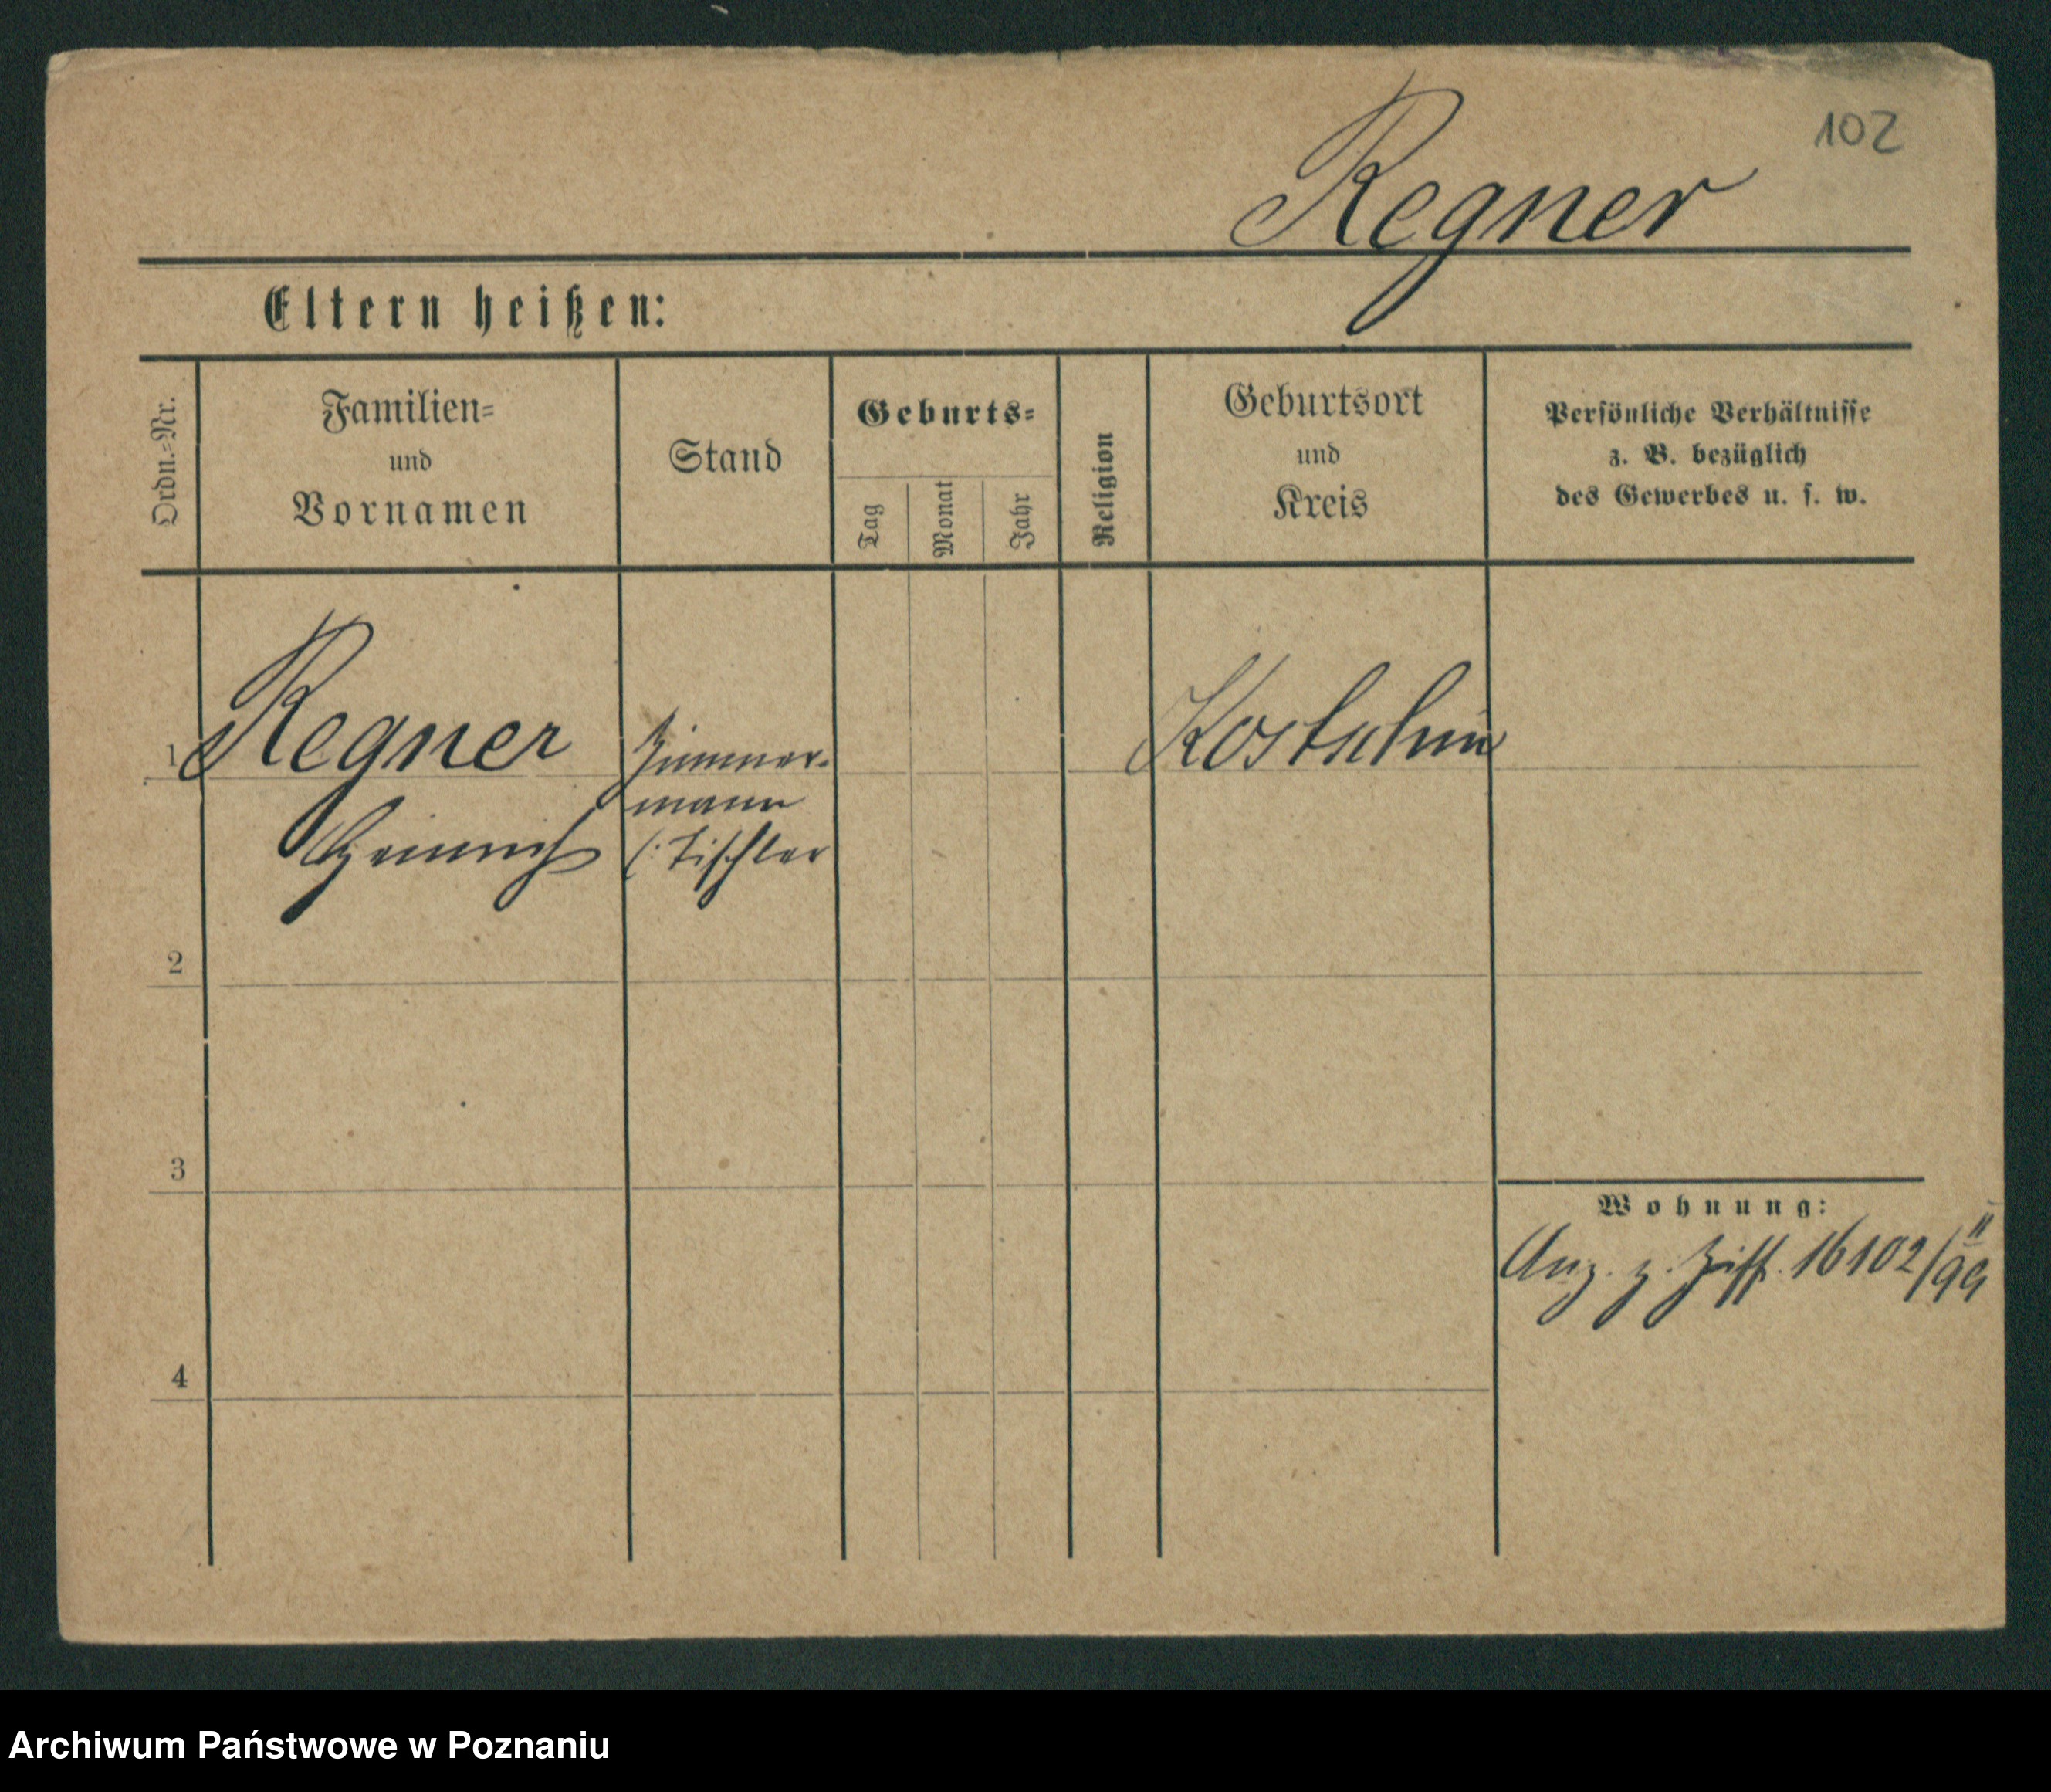 102
Regner
Eltern heißen:
Ordn.-Nr.
Familien-
und
Vornamen
Stand
Geburts-
Tag
Monat
Jahr
Religion
Geburtsort
und
Kreis
Persönliche Verhältnisse
z. B. bezüglich
des Gewerbes u. s. w.
1
Regner
Heinrich
Zimmer-
mann
(: Tischler
Kostschin
2
3
4
Wohnung:
Anz. z. Ziff. 16102/99 II
Archiwum Państwowe w Poznaniu